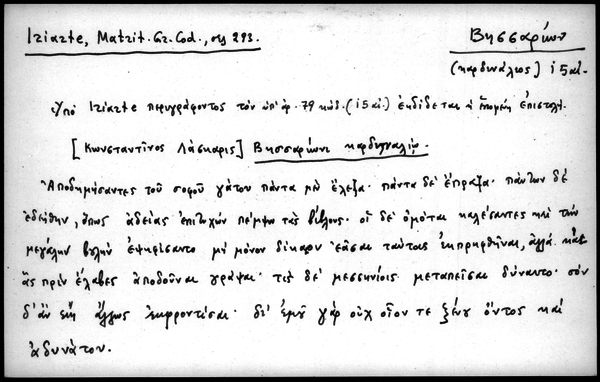 Iriarte, Matrit. Gr. Cod., σελ 293.
Βησσαρίων
(καρδινάλιος) 15 αἰ.
Ὑπὸ Iriarte περιγράφοντος τὸν ὑπ' ἀρ. 79 κώδ. (15 αἰ.) ἐκδίδεται ἡ ἑπομένη ἐπιστολή.
[Κωνσταντῖνος Λάσκαρις] Βησσαρίωνι καρδιναλίῳ.
Ἀποδημήσαντος τοῦ σοφοῦ γάτου πάντα μὲν ἔλεξα· πάντα δὲ ἔπραξα· πάντων δὲ
ἐδεήθην, ὅπως ἀδείας ἐπιτυχὼν πέμψω τὰς βίβλους. οἱ δὲ ὀμόται καλέσαντες καὶ τὴν
μεγάλην βουλὴν ἐψηφίσαντο μὴ μόνον δίκαιον ἐᾶσαι ταύτας ἐκπορηθῆναι, ἀλλὰ καὶ
ἃς πρὶν ἔλαβες ἀποδοῦναι γράψαι· τίς δὲ μεσσηνίους μεταπεῖσαι δύναιτο· σὸν
δ' ἂν εἴη ἄλλως ἐκφροντίσαι· δι' ἐμοῦ γὰρ οὐχ οἷόν τε ξένου ὄντος καὶ
ἀδυνάτου.